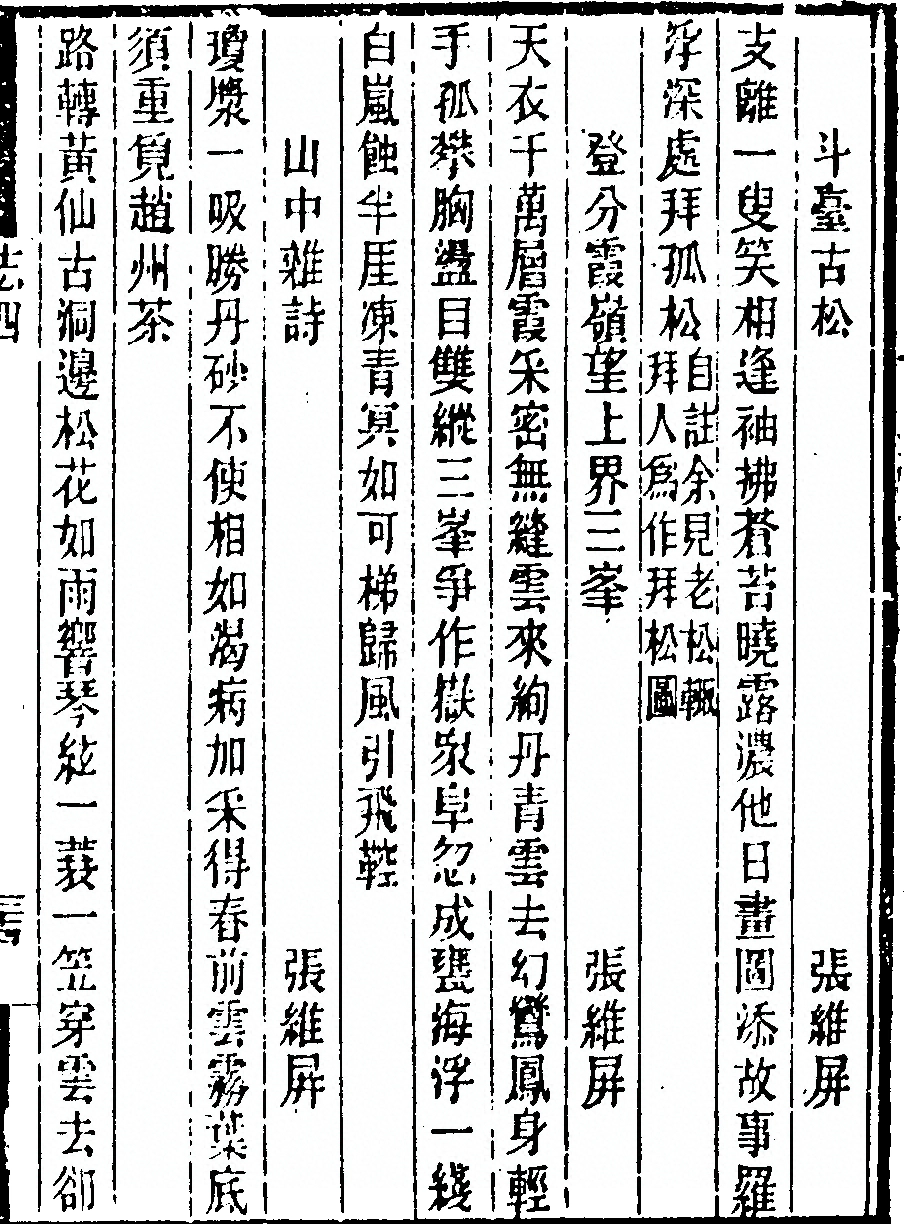 斗臺古松　張維屏
支離一叟笑相逢袖拂蒼苔曉露濃他日畫圖添故事羅
浮深處拜孤松自註余見老松輒拜人爲作拜松圖
登分霞嶺望上界三峯　張維屏
天衣千萬層霞采密無縫雲來絢丹青雲去幻鸞鳳身輕
手孤攀胸盪目雙縱三峯爭作嶽衆阜忽成甕海浮一綫
白嵐蝕半厓凍青冥如可梯歸風引飛鞚
山中雜詩　張維屏
瓊漿一吸勝丹砂不使相如渴病加采得春前雲霧葉底
須重覓趙州茶
路轉黃仙古洞邊松花如雨響琴絃一蓑一笠穿雲去卻
志四